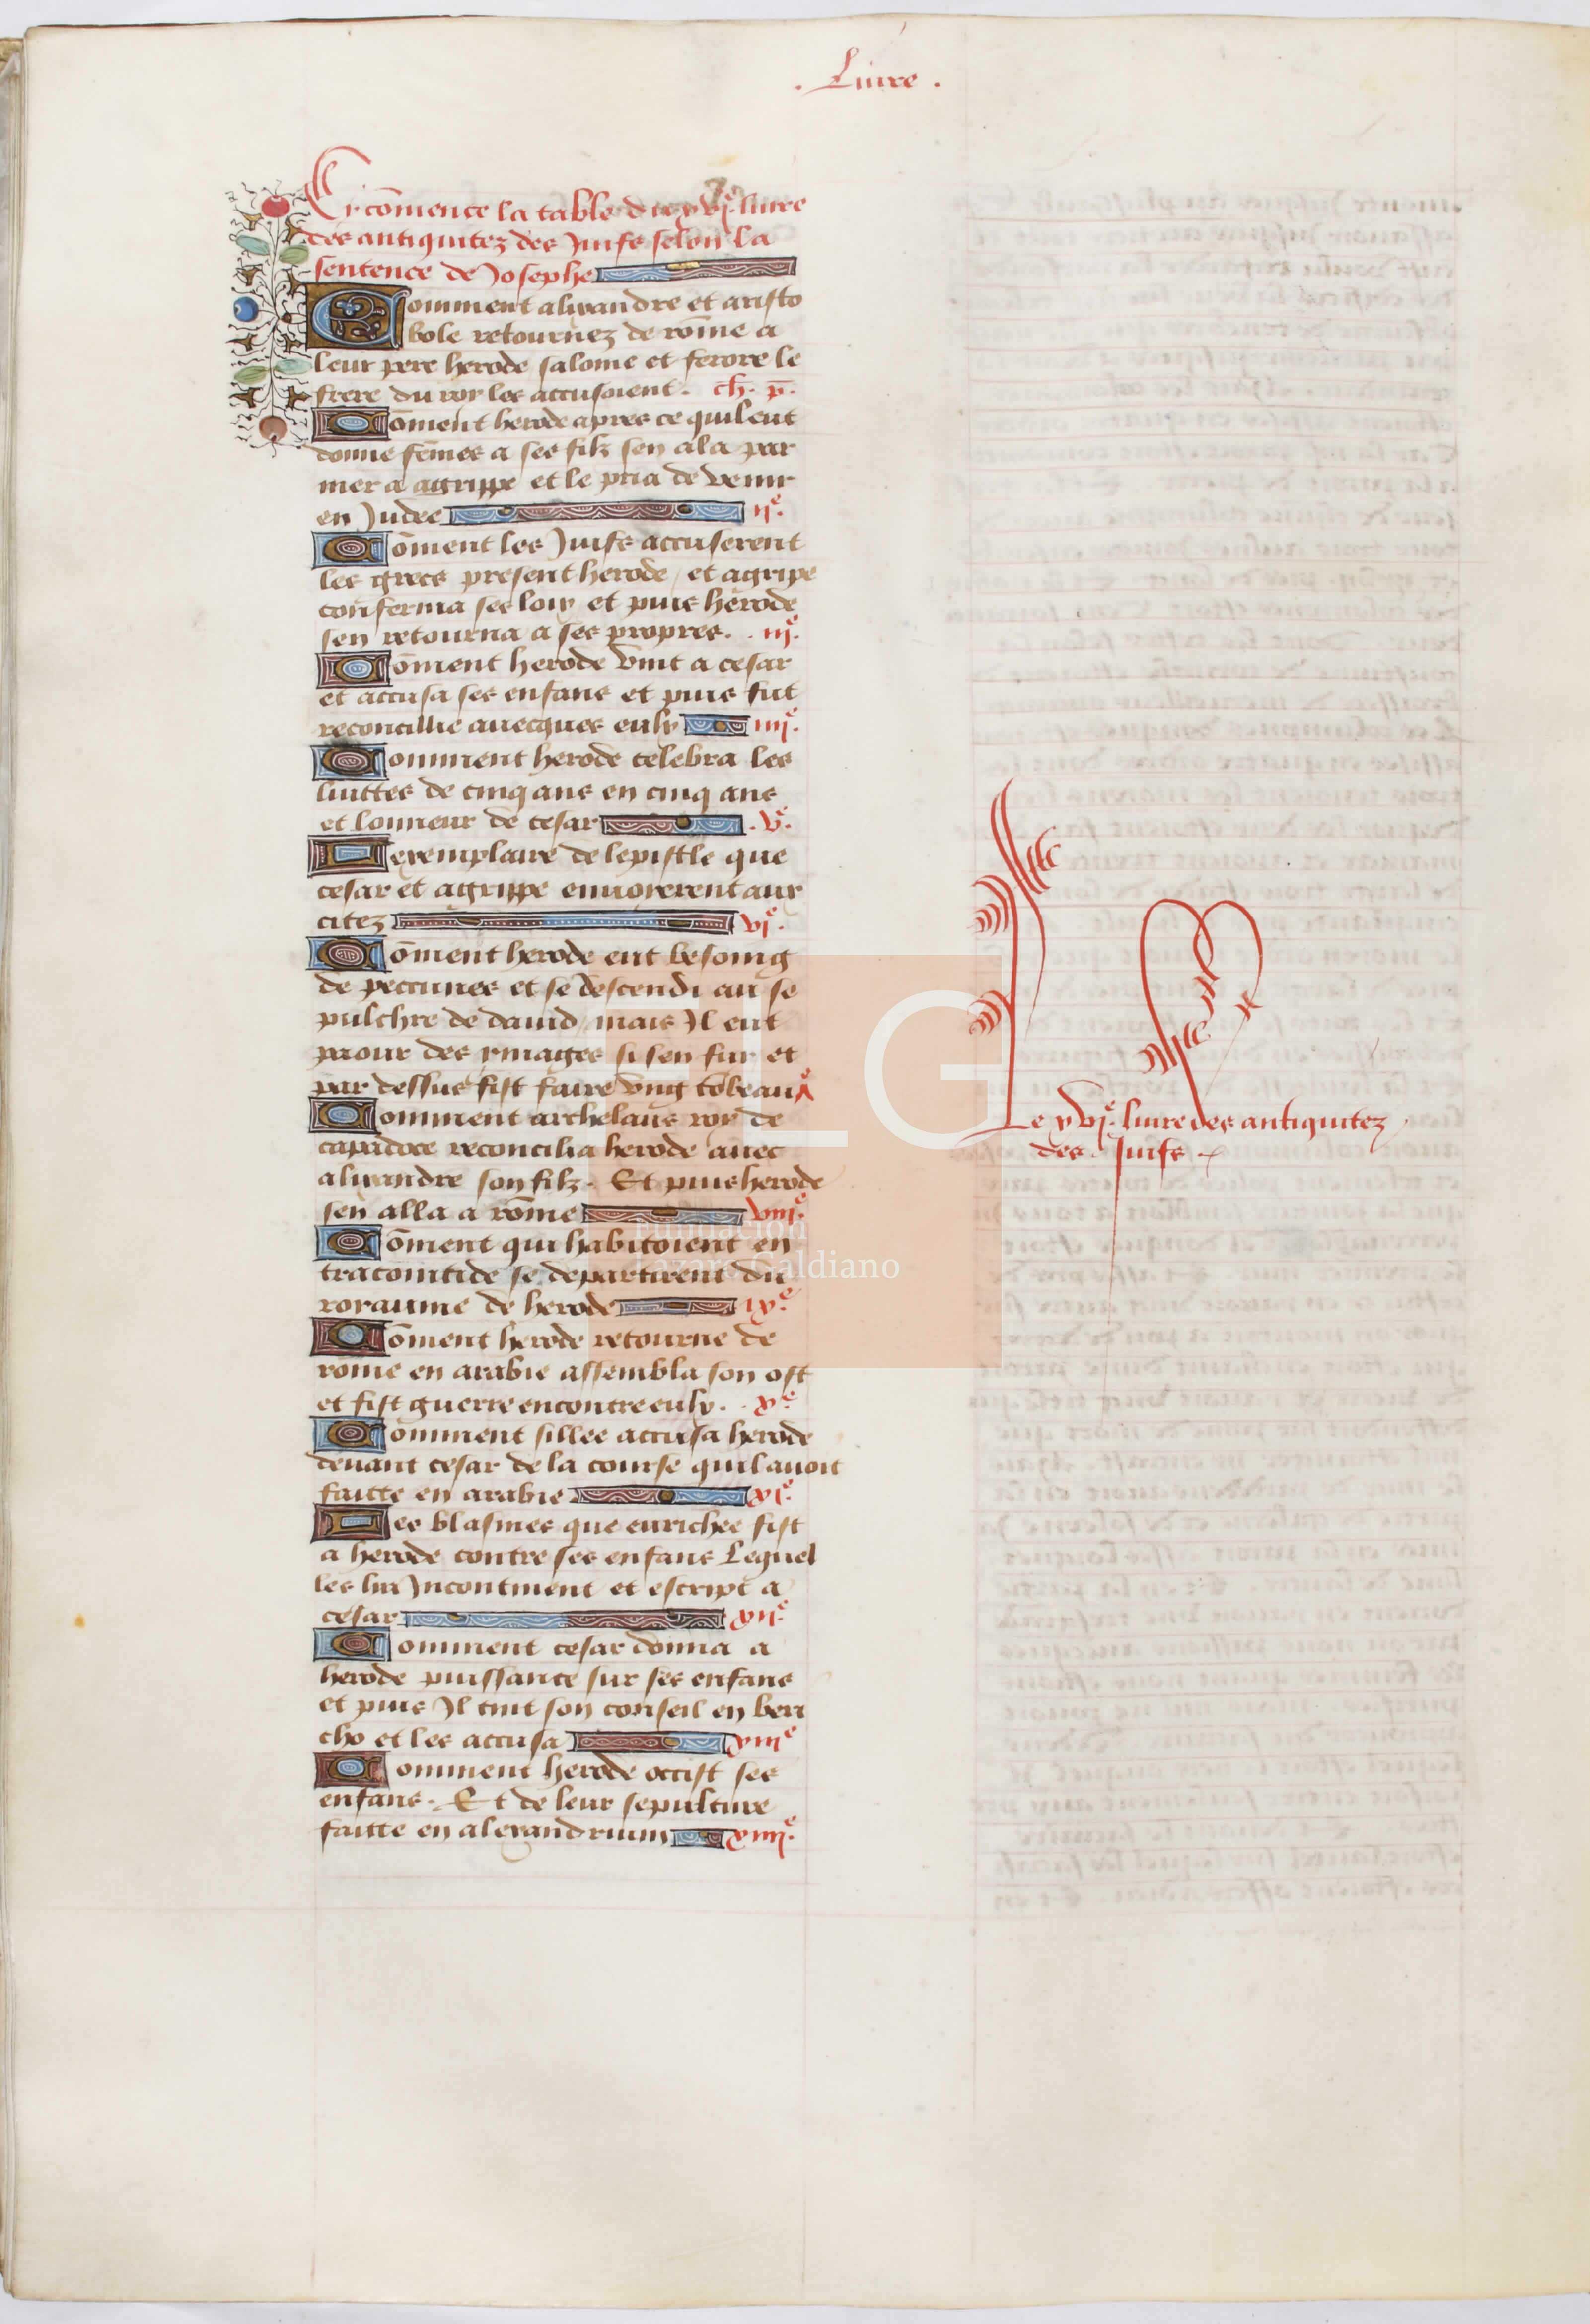 . Liure .
Cy cōmence la table du xvjᵉ. liure
des antiquitez des Juifs selon la
sentence de Josephe
Comment alixandre et aristo
bole retournez de rōme a
leur pere herode salome et ferore le
frere du roy les accusoient. ch. p̄.
Cōment herode apres ce quil eut
donne fēmes a ses filz sen ala par
mer a agrippe et le pria de venir
en Judee ijᵉ.
Cōment les Juifs accuserent
les grecs present herode / et agripe
conferma ses loix et puis herode
sen retourna a ses propres. . iijᵉ.
Cōment herode vint a cesar
et accusa ses enfans et puis fut
reconcillie auecques eulx iiijᵉ.
Comment herode celebra les
luittes de cinq ans en cinq ans
et lonneur de cesar . vᵉ.
Lexemplaire de lepistle que
cesar et agrippe enuoyerent aux
citez vjᵉ.
Cōment herode eut besoing
de peccunes et se descendi au se
pulchre de dauid / mais Il eut
paour des ymages si sen fuy et
par dessus fist faire vng tōbeau
Comment archelaus roy de
capadoce reconcilia herode auec
alixandre son filz. Et puis herode
sen alla a rōme viijᵉ.
Cōment qui habitoient en
traconitide se departirent du
royaume de herode ixᵉ.
Cōment herode retourne de
rōme en arabie assembla son ost
et fist guerre encontre eulx. . xᵉ.
Comment sillee accusa herode
deuant cesar de la course quil auoit
faitte en arabie xjᵉ.
Les blasmes que euriches fist
a herode contre ses enfans Lequel
les lia Incontinent et escript a
cesar xijᵉ.
Comment cesar donna a
herode puissance sur ses enfans
et puis Il tint son conseil en beri
cho et les accusa xiijᵉ
Comment herode occist ses
enfans. Et de leur sepulture
faitte en alexandrium xiiijᵉ.
Le xvjᵉ. liure des antiquitez
des Juifs.
FLG
Fundación
Lázaro Galdiano